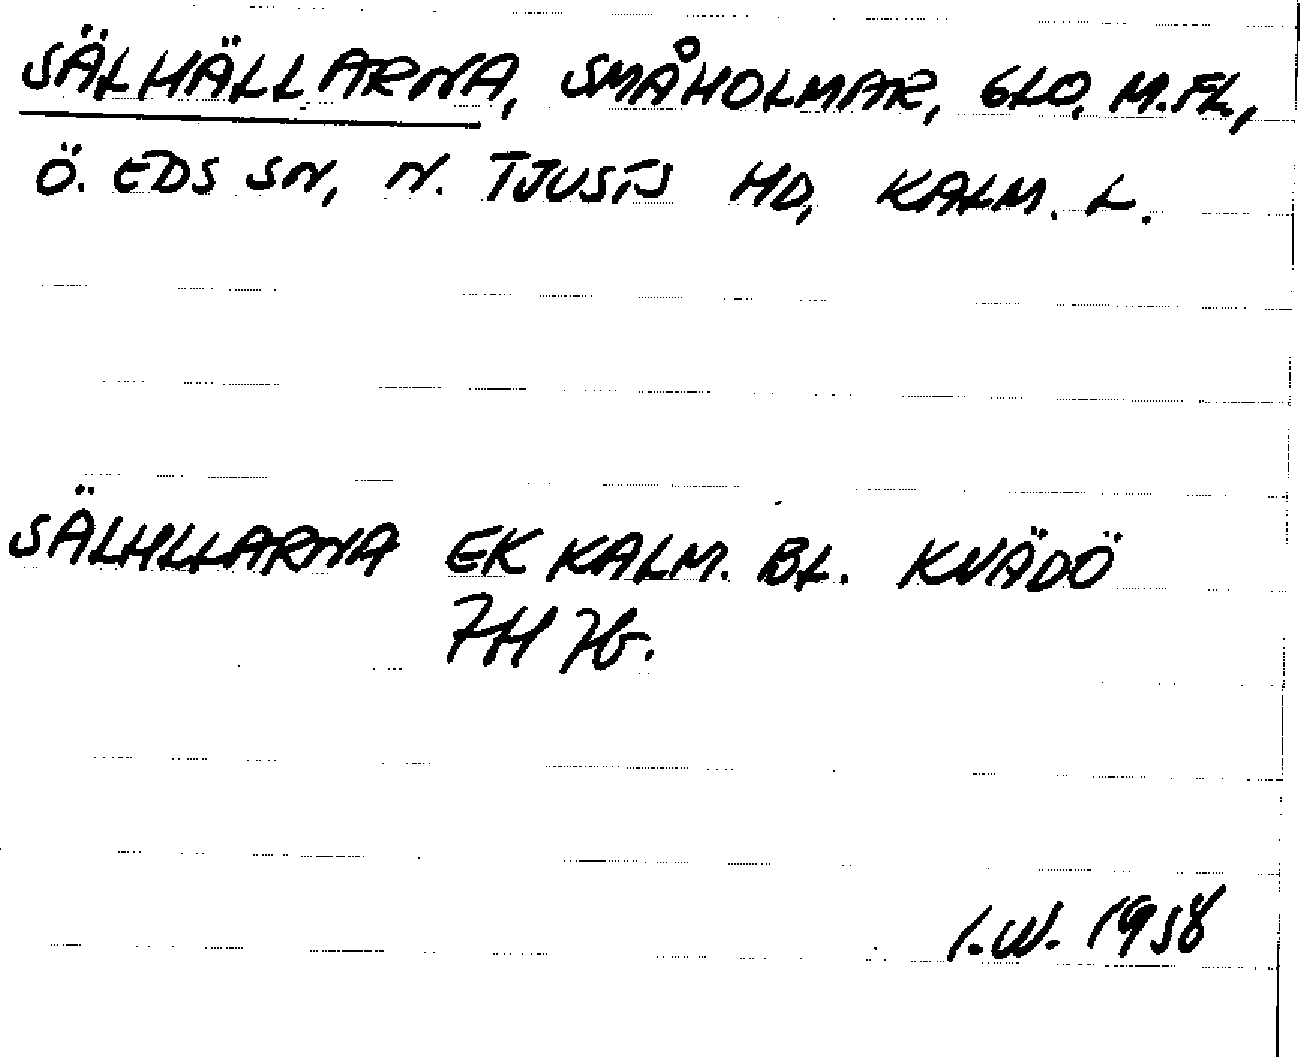 SÄLHÄLLARNA, SMÅHOLMAR, GLO, M.FL.,
Ö. EDS SN, N. TJUSTS HD, KALM. L.
SÄLHLLARNA EK KALM. BL. KVÄDÖ
7H 7b.
I.W. 1958